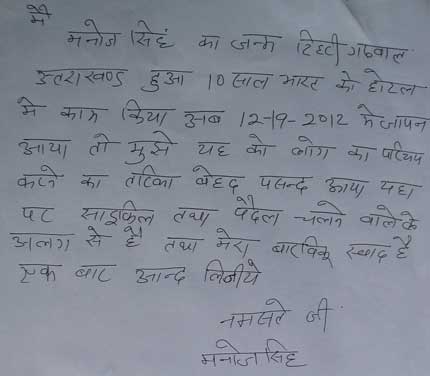 मै
मनोज सिंह का जन्म टिहरी गढवाल
उत्तराखण्ड हुआ 10 साल भारत के होटल
मे काम किया अब 12-19-2012 मे जापन
आया तो मुझे यह के लोग का परिचय
करने का तरिका बेहद पसन्द आया यहा
पर साइकिल तथा पैदल चलने वाले के
अलग से है तथा मेरा स्वाद है
एक बार आन्द लिजीये
नमस्ते जी
मनोज सिंह